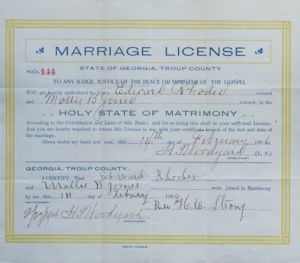 MARRIAGE LICENSE
STATE OF GEORGIA, TROUP COUNTY
NO. 144
TO ANY JUDGE, JUSTICE OF THE PEACE OR MINISTER OF THE GOSPEL
YOU are hereby authorized to join Edward Rhodes colored
and Mollie B Jones colored, in the
HOLY STATE OF MATRIMONY
According to the Constitution and Laws of this State, and for so doing this shall be your sufficient License. And
you are hereby required to return this License to me, with your certificate hereon of the fact and date of
the marriage.
Given under my hand and seal, this 14th day of February 6
H. Woodyard (L. S.)
GEORGIA, TROUP COUNTY.
I CERTIFY, That Rhodes
and Mollie B Jones were joined in Matrimony
by me, this 18 day of 6
H Woodyard Rev H. W. Strong